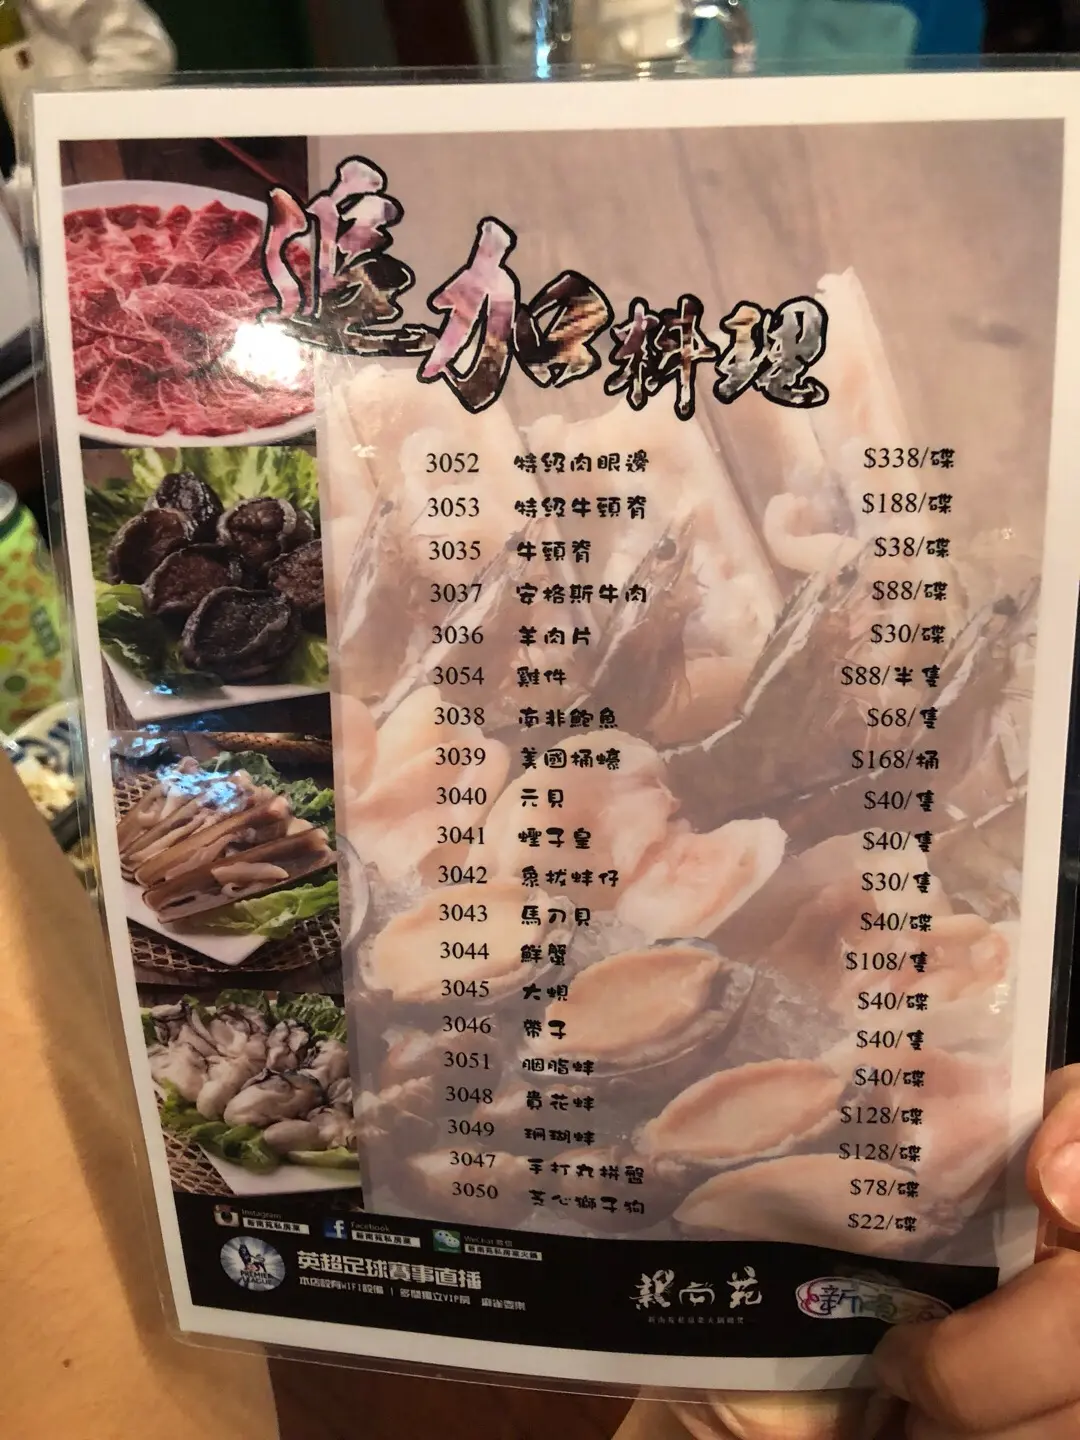 追加料理
3052 特級肉眼邊 $338/碟
3053 特級牛頸脊 $188/碟
3035 牛頸脊 $38/碟
3037 安格斯牛肉 $88/碟
3036 羊肉片 $30/碟
3054 雞件 $88/半隻
3038 南非鮑魚 $68/隻
3039 美國桶蠔 $168/桶
3040 元貝 $40/隻
3041 蟶子皇 $40/隻
3042 象拔蚌仔 $30/隻
3043 馬刀貝 $40/碟
3044 鮮蟹 $108/隻
3045 大蜆 $40/碟
3046 帶子 $40/隻
3051 胭脂蚌 $40/碟
3048 貴花蚌 $128/碟
3049 珊瑚蚌 $128/碟
3047 手打丸拼盤 $78/碟
3050 芝心獅子狗 $22/碟
Instagram
新南苑私房菜
Facebook
新南苑私房菜
WeChat 微信
新南苑私房菜火鍋
PREMIER LEAGUE
英超足球賽事直播
本店設有WIFI設備 | 多間獨立VIP房 麻雀耍樂